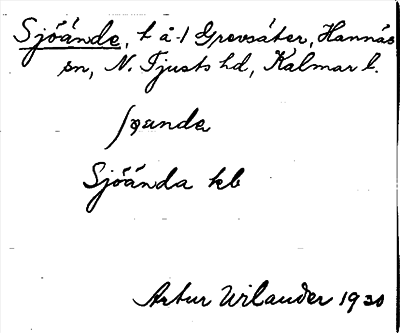 Sjöände, t å 1 Grevsäter, Hannäs
sn, N. Tjusts hd, Kalmar l.
Sjöända kb
Artur Wilander 1930